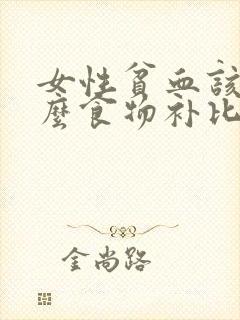 女性贫血該
麼食物补比
金尚路